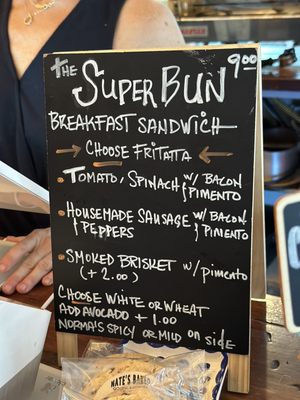 THE SUPER BUN 9.00
BREAKFAST SANDWICH
CHOOSE FRITATTA
TOMATO, SPINACH W/ BACON
} PIMENTO
HOUSEMADE SAUSAGE W/ BACON
{ PEPPERS } PIMENTO
SMOKED BRISKET w/ pimento
(+ 2.00)
CHOOSE WHITE OR WHEAT
ADD AVOCADO + 1.00
NORMA'S SPICY OR MILD on SIDE
NATE'S